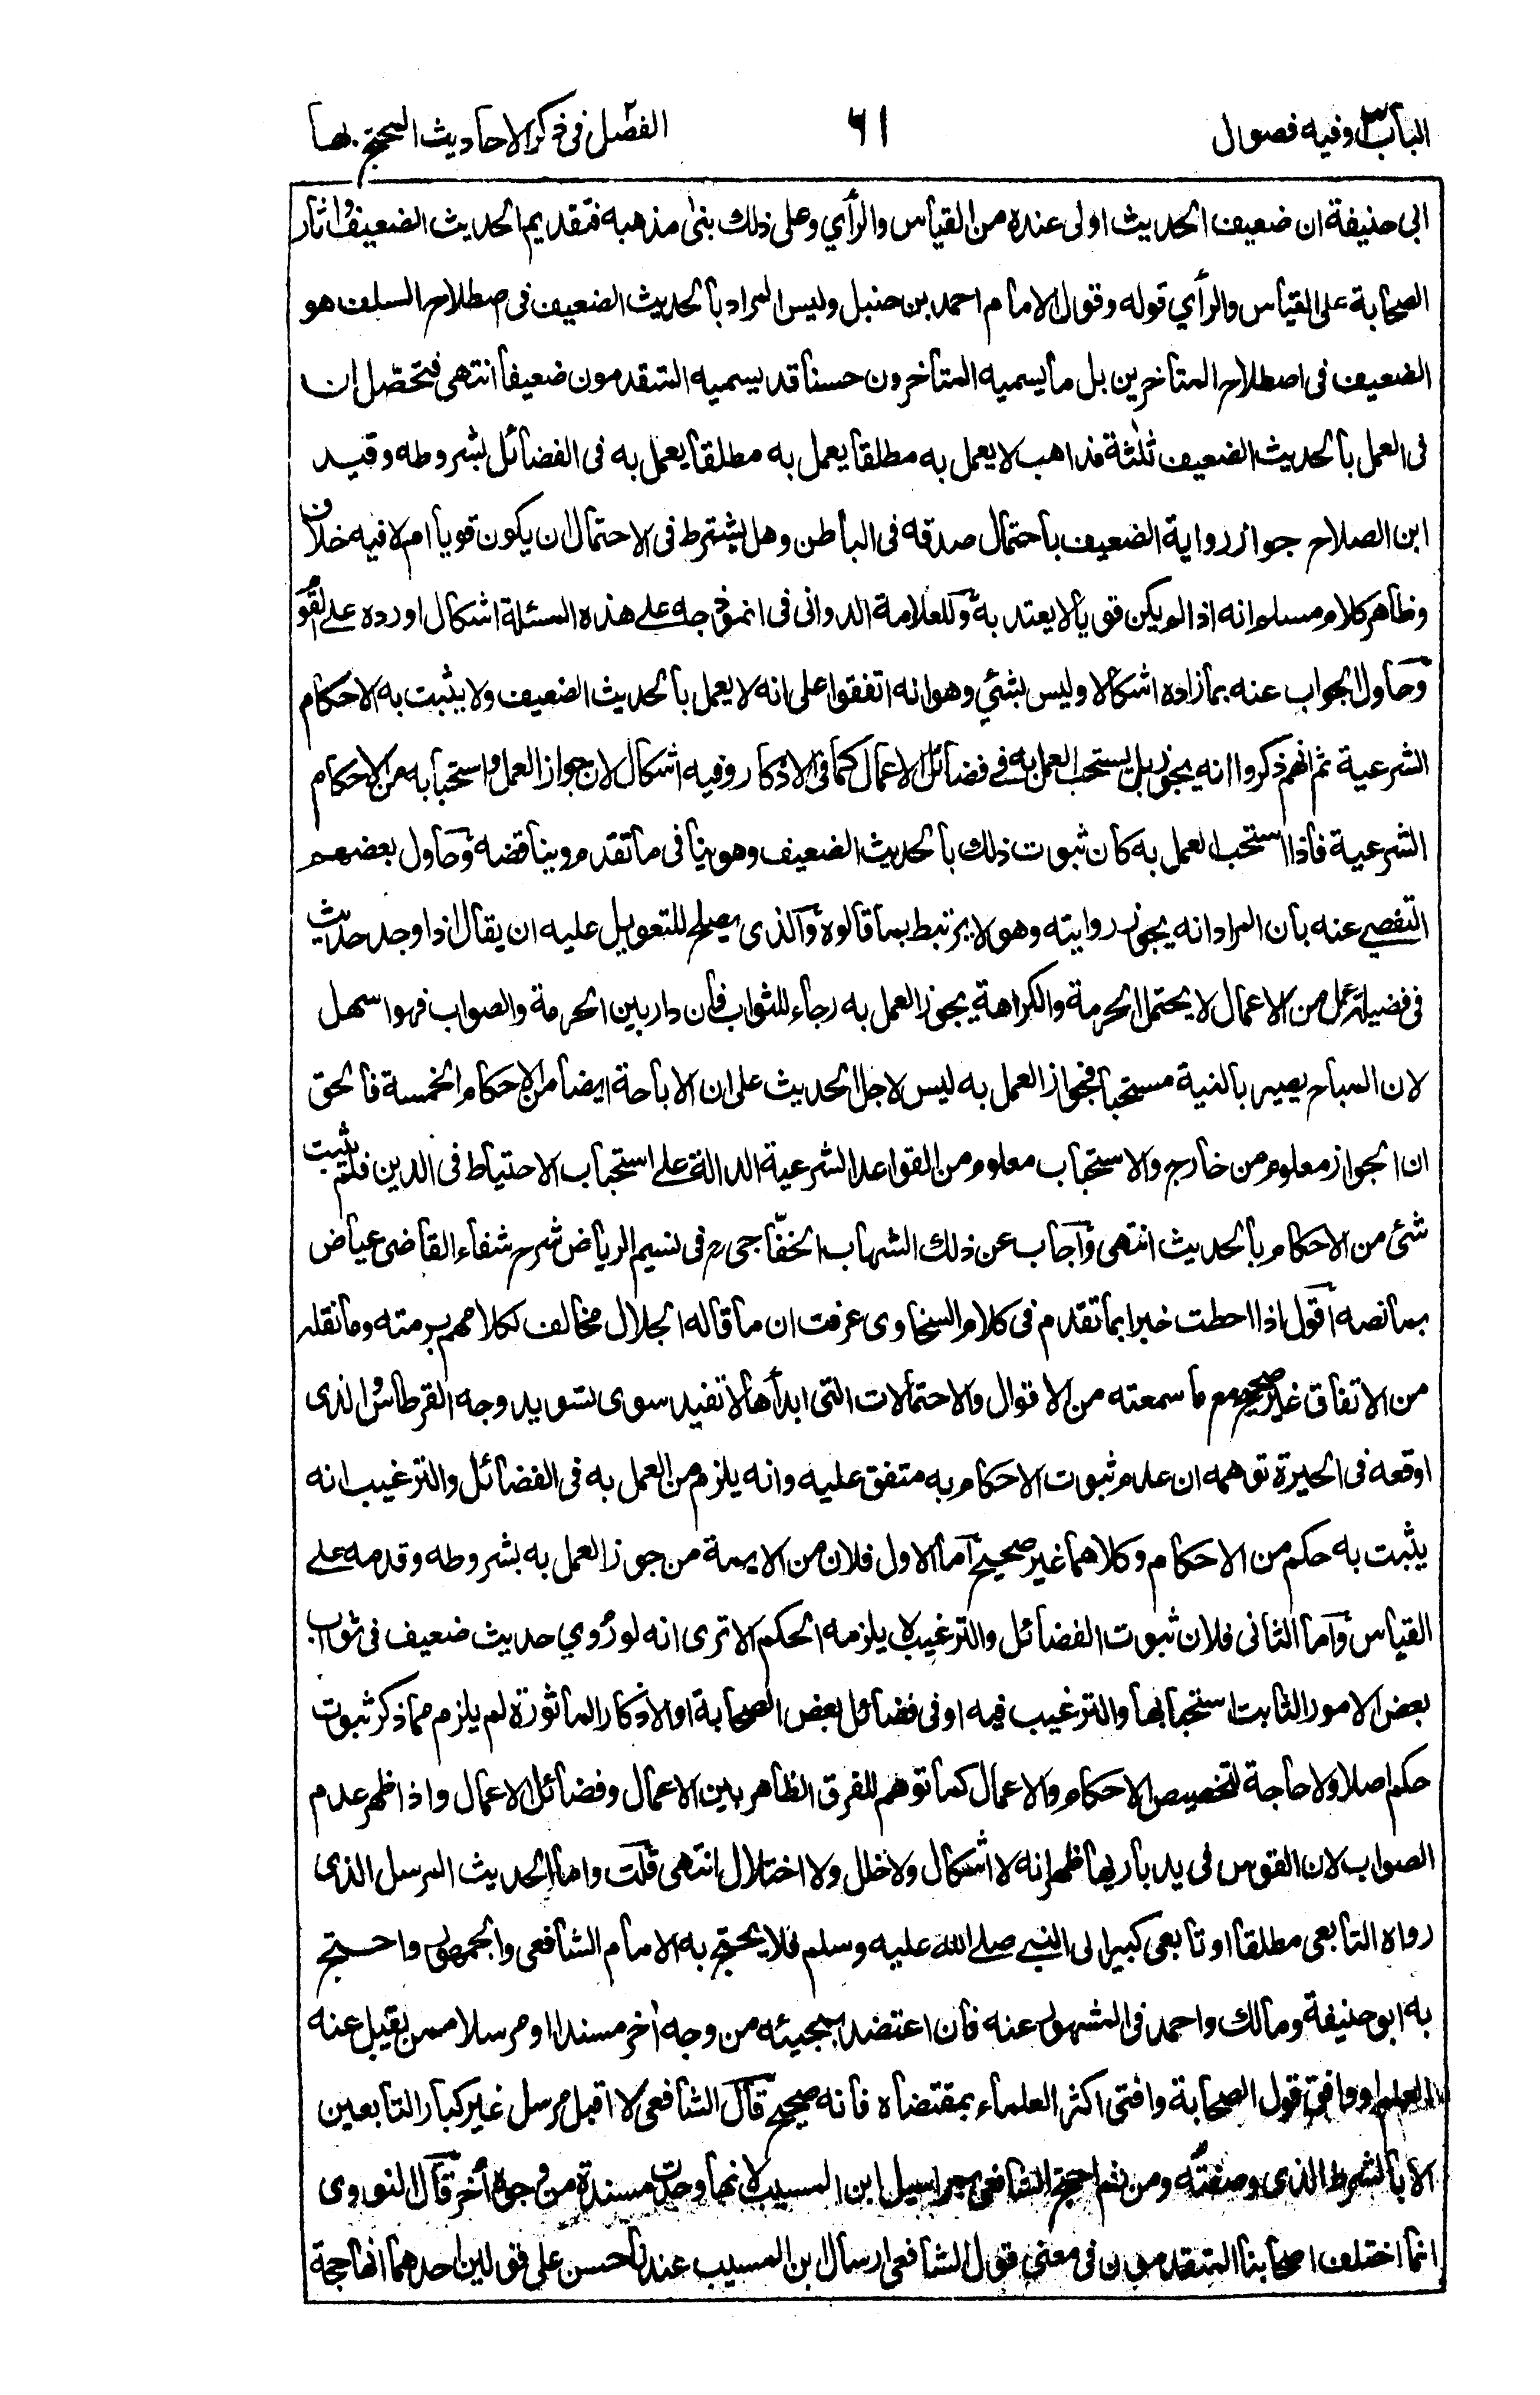 الباب ٣ وفيه فصول
٦١
الفصل ٢ فى ذكر الاحاديث المحتج بها
ابي حنيفة ان ضعيف الحديث اولى عنده من القياس والرأي وعلى ذلك بنى مذهبه فتقديم الحديث الضعيف واثار
الصحابة على القياس والرأي قوله وقول الامام احمد بن حنبل وليس المراد بالحديث الضعيف فى صطلاح السلف هو
الضعيف فى اصطلاح المتاخرين بل ما يسميه المتاخرون حسنا قد يسميه المتقدمون ضعيفا انتهى فتحصّل ان
فى العمل بالحديث الضعيف ثلثة مذاهب لا يعمل به مطلقا يعمل به مطلقا يعمل به فى الفضائل بشروطه وقيد
ابن الصلاح جواز رواية الضعيف باحتمال صدقه فى الباطن وهل يشترط فى الاحتمال ان يكون قويا ام لا فيه خلاف
وظاهر كلام مسلم انه اذا لم يكن قويا لا يعتد به وللعلامة الدوانى فى انموذجه على هذه المسئلة اشكال اورده على القو
وحاول الجواب عنه بما زاده اشكالا وليس بشئ وهو انه اتفقوا على انه لا يعمل بالحديث الضعيف ولا يثبت به الاحكام
الشرعية ثم انهم ذكروا انه يجوز بل يستحب العمل به فى فضائل الاعمال كما فى الاذكار وفيه اشكال لان جواز العمل واستحبابه من الاحكام
الشرعية فاذا استحب العمل به كان ثبوت ذلك بالحديث الضعيف وهو ينافى ما تقدم ويناقضه وحاول بعضهم
التفصى عنه بان المراد انه يجوز روايته وهو لا يرتبط بما قالوه والذى يصلح للتعويل عليه ان يقال اذا وجد حديث
فى فضيلة عمل من الاعمال لا يحتمل الحرمة والكراهة يجوز العمل به رجاء للثواب فان دار بين الحرمة والصواب فهو اسهل
لان المباح يصير بالنية مستحبا فجواز العمل به ليس لاجل الحديث على ان الاباحة ايضا من الاحكام الخمسة فالحق
ان الجواز معلوم من خارج والاستحباب معلوم من القواعد الشرعية الدالة على استحباب الاحتياط فى الدين فلم يثبت
شئ من الاحكام بالحديث انتهى واجاب عن ذلك الشهاب الخفّاجى رح فى نسيم الرياض شرح شفاء القاضى عياض
بما نصه اقول اذا احطت خبرا بما تقدم فى كلام السخاوى عرفت ان ما قاله الجلال مخالف لكلامهم برمته وما نقله
من الاتفاق غير صحيح مع ما سمعته من الاقوال والاحتمالات التى ابدأها لا تفيد سوى تسويد وجه القرطاس والذى
اوقعه فى الحيرة توهمه ان عدم ثبوت الاحكام به متفق عليه وانه يلزم من العمل به فى الفضائل والترغيب انه
يثبت به حكم من الاحكام وكلاهما غير صحيح اما الاول فلان من الايمة من جوز العمل به بشروطه وقدمه على
القياس واما الثانى فلان ثبوت الفضائل والترغيب لا يلزمه الحكم الا ترى انه لو رُوي حديث ضعيف فى ثواب
بعض الامور الثابت استحبابها والترغيب فيه او فى فضائل بعض الصحابة او الاذكار الماثورة لم يلزم مما ذكر ثبوت
حكم اصلا ولا حاجة لتخصيص الاحكام والاعمال كما توهم للفرق الظاهر بين الاعمال وفضائل الاعمال واذا ظهر عدم
الصواب لان القوس فى يد باريها ظهر انه لا اشكال ولا خلل ولا اختلال انتهى قلت واما الحديث المرسل الذى
رواه التابعى مطلقا او تابعى كبير الى النبى صلى الله عليه وسلم فلا يحتج به الامام الشافعى والجمهور واحتج
به ابو حنيفة ومالك واحمد فى المشهور عنه فان اعتضد بمجيئه من وجه اخر مسندا او مرسلا ممن يقبل عنه
العلم او وافق قول الصحابة وافتى اكثر العلماء بمقتضاه فانه صحيح قال الشافعى لا اقبل مرسل غير كبار التابعين
الا بالشرط الذى وصفته ومن ثم احتج الشافعى بمراسيل ابن المسيب لانها وجدت مسندة من وجوه أخر قال النووى
انما اختلف اصحابنا المتقدمون فى معنى قول الشافعى ارسال ابن المسيب عندنا حسن على قولين احدهما انها حجة